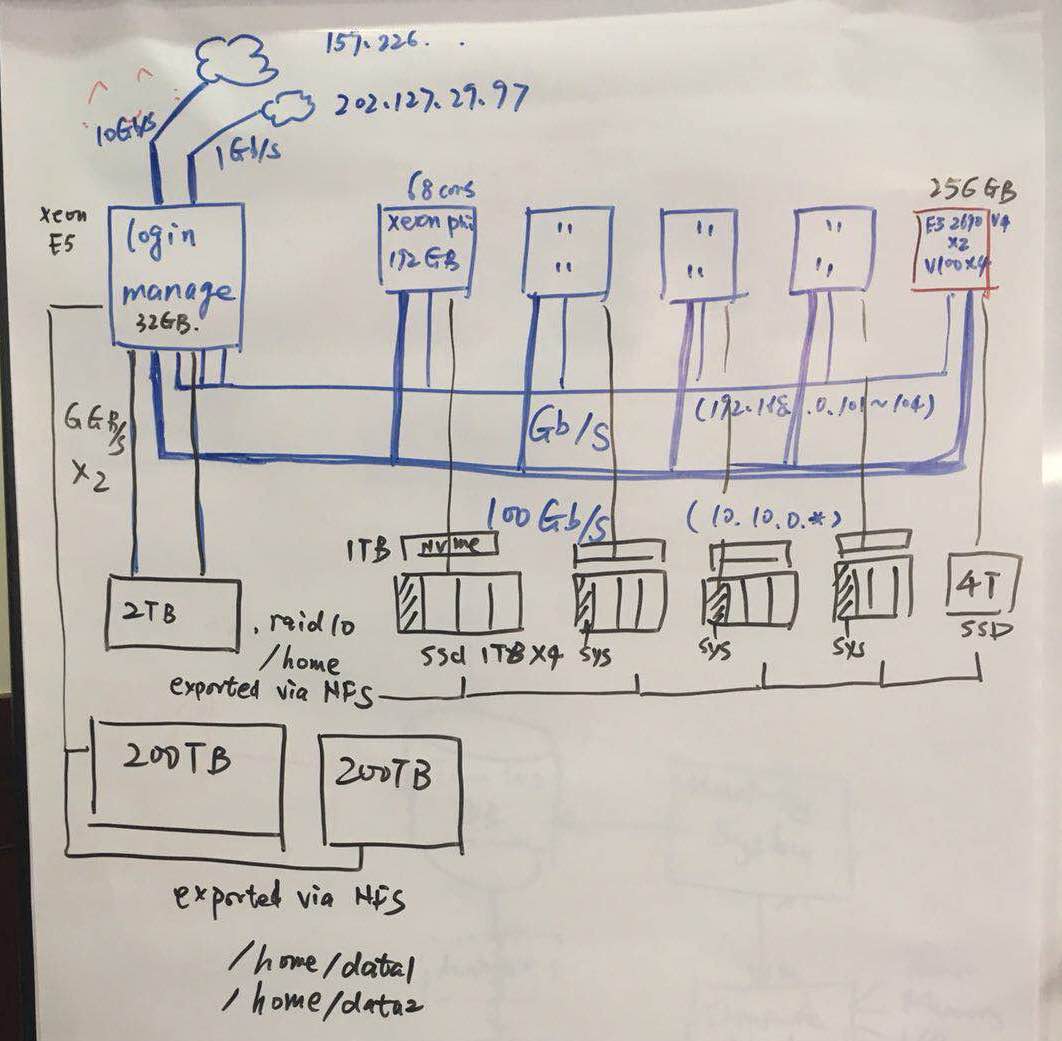 157.226. . .
202.127.29.97
10Gb/s
1Gb/s
Xeon
E5
login
manage
32GB.
68 cores
xeon phi
192GB
"
"
"
"
"
"
256GB
E5 2690 V4
X2
V100X4
6GB/s
X2
Gb/s
(192.168.0.101~104)
100Gb/s
(10.10.0.*)
1TB
NVMe
2TB
. raid10
/home
exported via NFS
ssd 1TBX4
sys
sys
sys
4T
SSD
200TB
200TB
exported via NFS
/home/data1
/home/data2